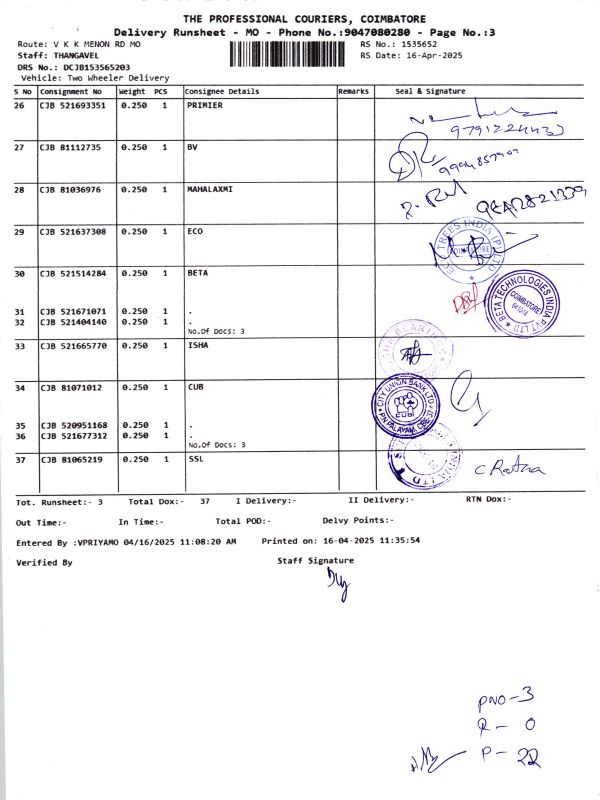 THE PROFESSIONAL COURIERS, COIMBATORE
Delivery Runsheet - MO - Phone No.:9047080280 - Page No.:3
Route: V K K MENON RD MO RS No.: 1535652
Staff: THANGAVEL RS Date: 16-Apr-2025
DRS No.: DCJB153565203
Vehicle: Two Wheeler Delivery
S No Consignment No Weight PCS Consignee Details Remarks Seal & Signature
26 CJB 521693351 0.250 1 PRIMIER
27 CJB 81112735 0.250 1 BV
28 CJB 81036976 0.250 1 MAHALAXMI
29 CJB 521637308 0.250 1 ECO
TREES INDIA (P) LTD
30 CJB 521514284 0.250 1 BETA
BETA TECHNOLOGIES INDIA PVT LTD
COIMBATORE
31 CJB 521671071 0.250 1 .
32 CJB 521404140 0.250 1 .
No.Of Docs: 3
33 CJB 521665770 0.250 1 ISHA
34 CJB 81071012 0.250 1 CUB
CITY UNION BANK LTD
CUB
35 CJB 520951168 0.250 1 .
36 CJB 521677312 0.250 1 .
No.Of Docs: 3
37 CJB 81065219 0.250 1 SSL
C Rathna
Tot. Runsheet:- 3 Total Dox:- 37 I Delivery:- II Delivery:- RTN Dox:-
Out Time:- In Time:- Total POD:- Delvy Points:-
Entered By :VPRIYAMO 04/16/2025 11:08:20 AM Printed on: 16-04-2025 11:35:54
Verified By Staff Signature
PNO-3
R- 0
P- 22